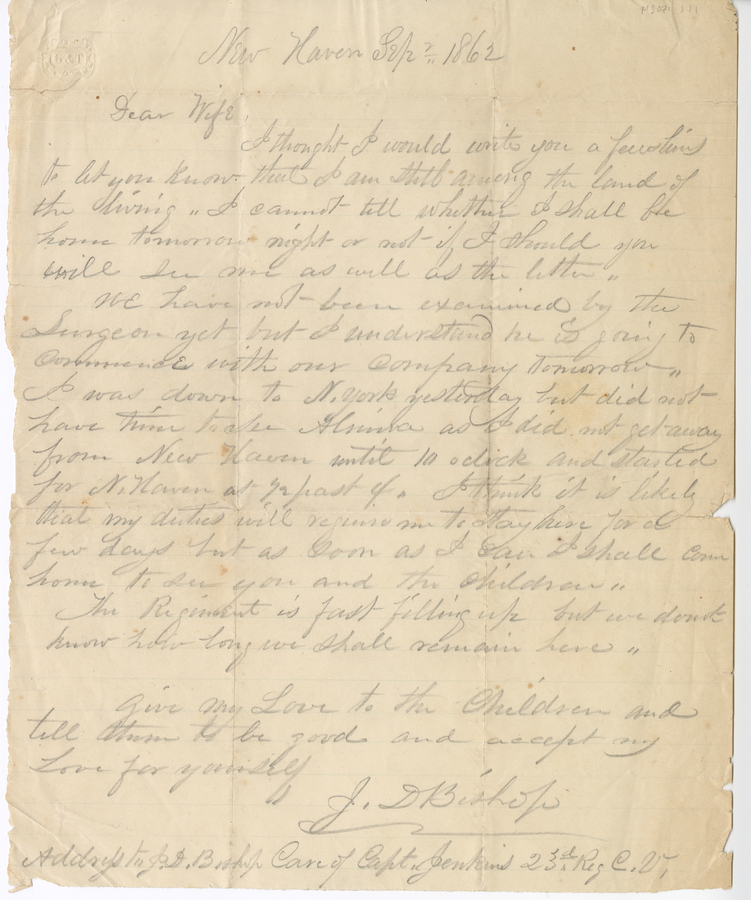 MS071 111
New Haven Sep 7" 1862
Dear Wife,
I thought I would write you a few lines
to let you know that I am still among the land of
the living" I cannot tell whether I shall be
home tomorrow night or not if I should you
will see me as well as the letter"
We have not been examined by the
Surgeon yet but I understand he is going to
Commence with our Company tomorrow"
I was down to N. York yesterday but did not
have time to see as I did not get away
from New Haven until 10 oclick and started
for N. Haven at ½ past 4" I think it is likely
that my duties will require me to stay here for a
few days but as soon as I can I shall come
home to see you and the children"
The Regiment is fast filling up but we do not
know how long we shall remain here"
Give my Love to the Children and
tell them to be good and accept my
Love for yourself
J. D Bishop
Address to J. D. Bishop Care of Capt. Jenkins 23rd Reg C. V.